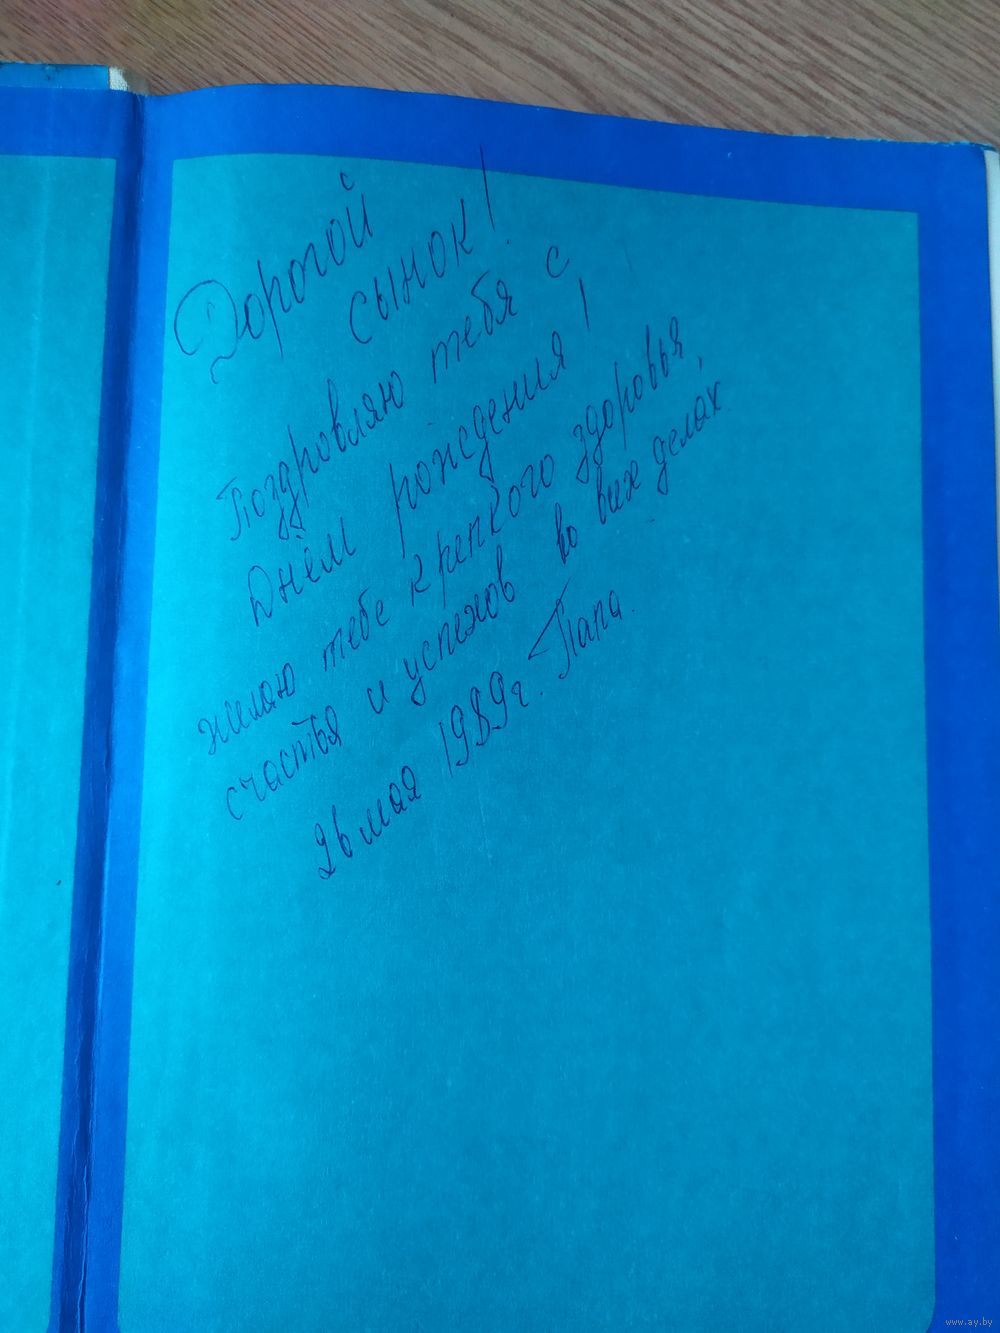 Дорогой
сынок!
Поздровляю тебя с
Днём рождения!
желаю тебе крепкого здоровья,
счастья и успехов во всех делах.
26 мая 1989г. Папа.
www.ay.by